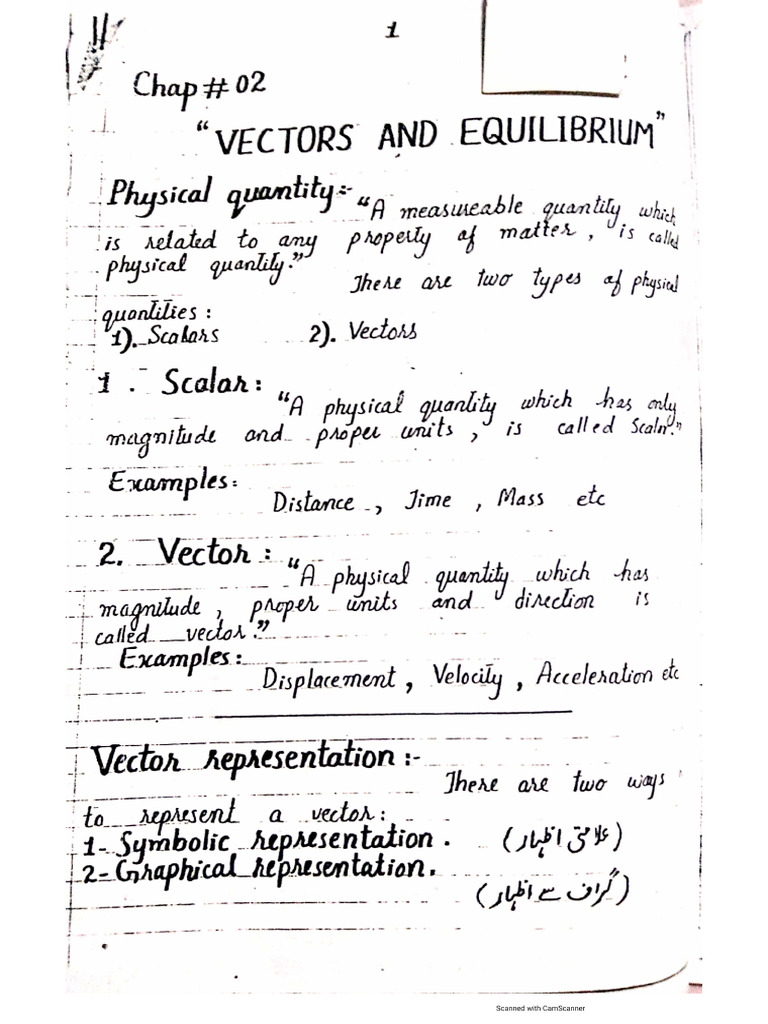 1
Chap # 02
"VECTORS AND EQUILIBRIUM"
Physical quantity:- "A measureable quantity which
is related to any property of matter, is called
physical quantity."
There are two types of physical
quantities:
1). Scalars 2). Vectors
1. Scalar:
"A physical quantity which has only
magnitude and proper units, is called Scalr."
Examples:
Distance, Time, Mass etc
2. Vector:
"A physical quantity which has
magnitude, proper units and direction is
called vector."
Examples:
Displacement, Velocity, Acceleration etc
Vector representation:-
There are two ways
to represent a vector:
1- Symbolic representation. (علامتی اظہار)
2- Graphical representation.
(گراف سے اظہار)
Scanned with CamScanner